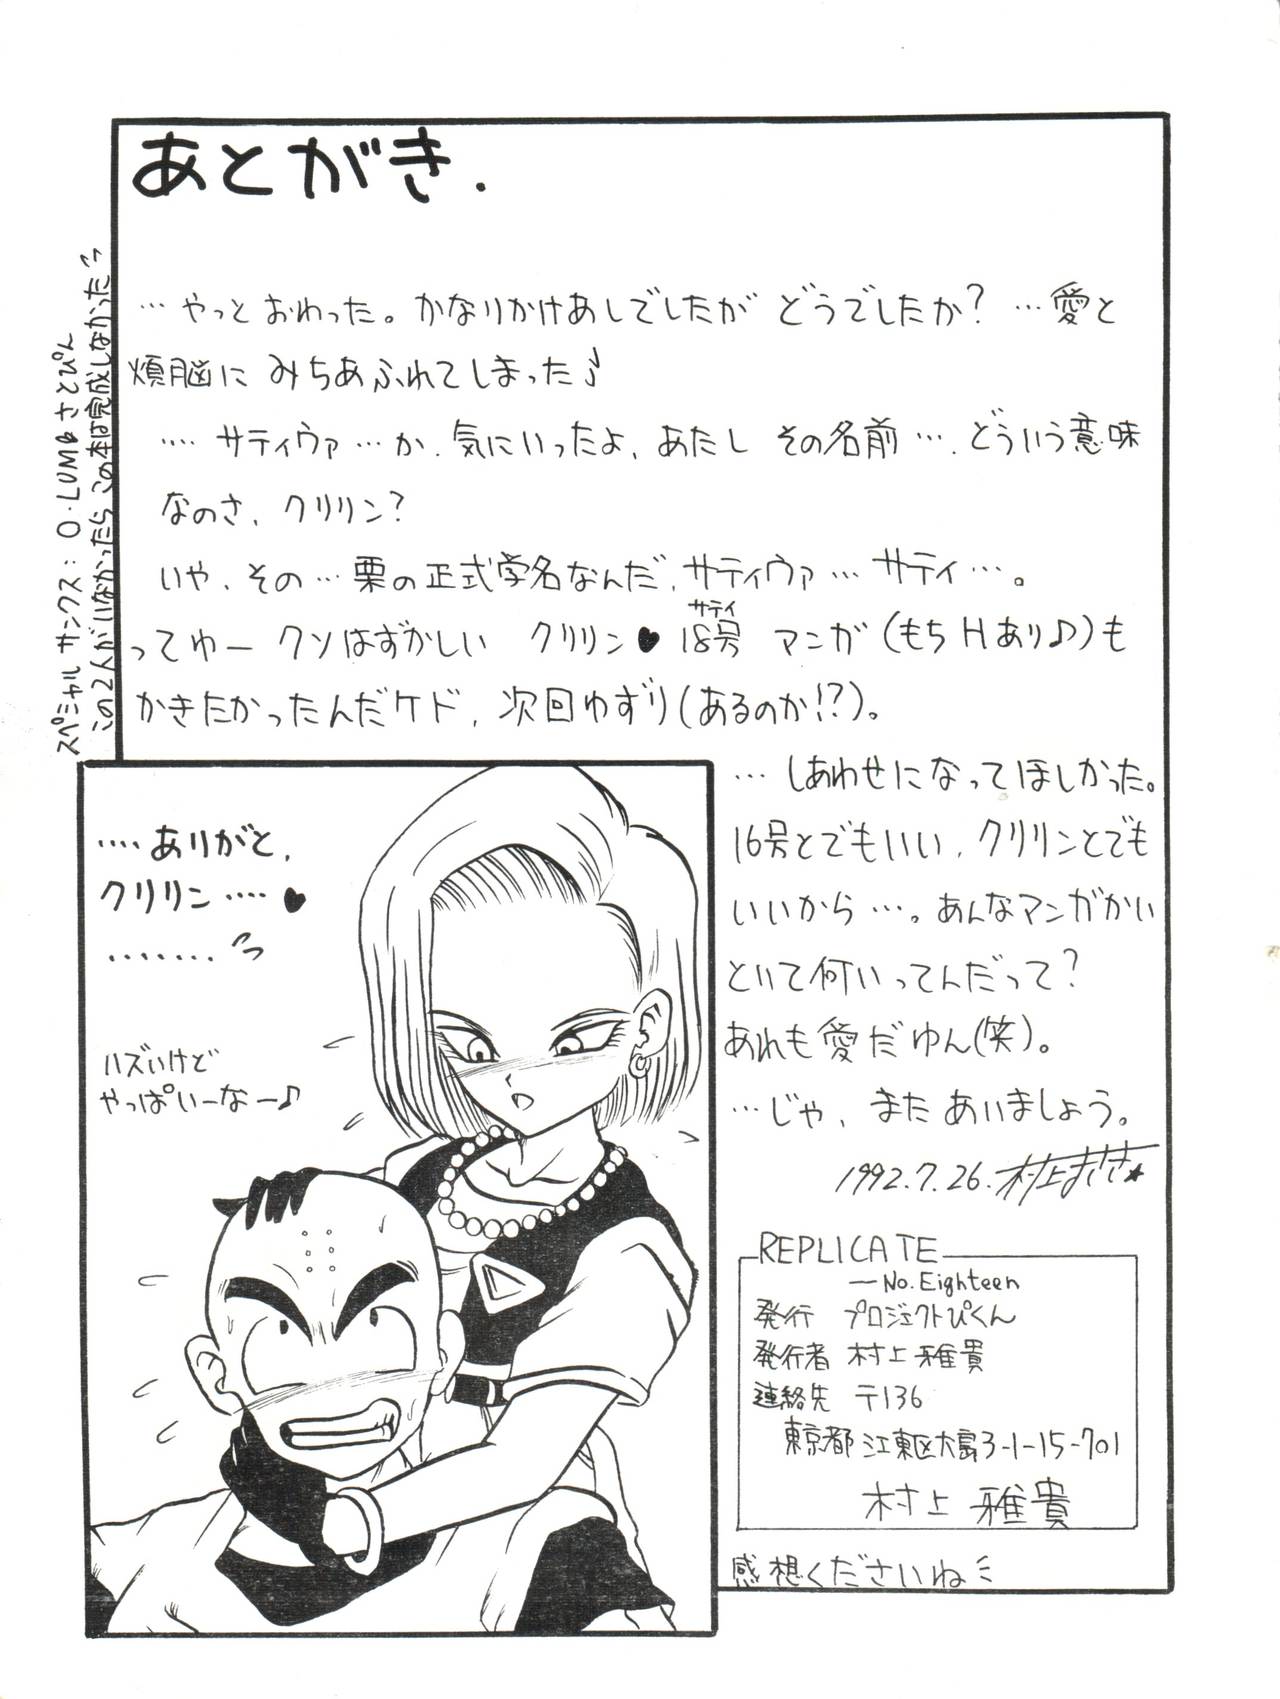 あとがき.
…やっとおわった。かなりかけあしでしたが どうでしたか? …愛と
煩脳に みちあふれてしまった♪
‥‥サティヴァ…か、気にいったよ、あたし その名前…。どういう意味
なのさ、クリリン?
いや、その…栗の正式学名なんだ、サティヴァ…サティ…。
サテイ
ってゆー クソはずかしい クリリン♥18号 マンガ(もちHあり♪)も
かきたかったんだケド、次回ゆずり(あるのか!?)。
…しあわせになってほしかった。
16号とでもいい、クリリンとでも
いいから…。あんなマンガかい
といて何いってんだって?
あれも愛だゆん(笑)。
…じゃ、また あいましょう。
1992.7.26.村上まさき★
スペシャルサンクス:O・LUM&さとぴん
この2人がいなかったらこの本は完成しなかった
‥‥ありがと、
クリリン‥‥♥
‥‥‥‥
ハズいけど
やっぱいーなー♪
REPLICATE
—No.Eighteen
発行 プロジェクトぴくん
発行者 村上 雅貴
連絡先 〒136
東京都 江東区大島3-1-15-701
村上 雅貴
感想くださいね